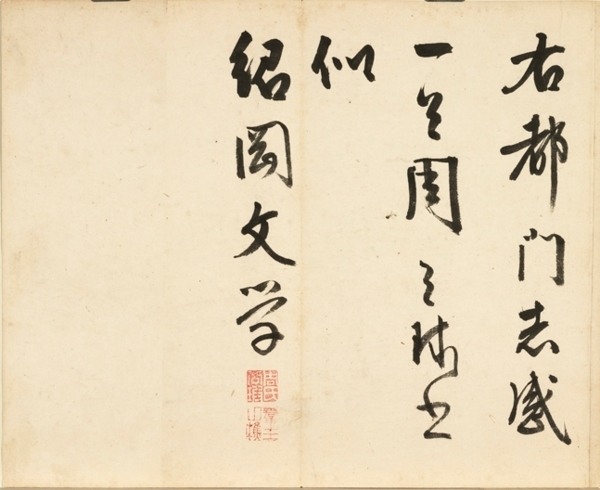 右都門志感
一首周之書
似
紹岡文学